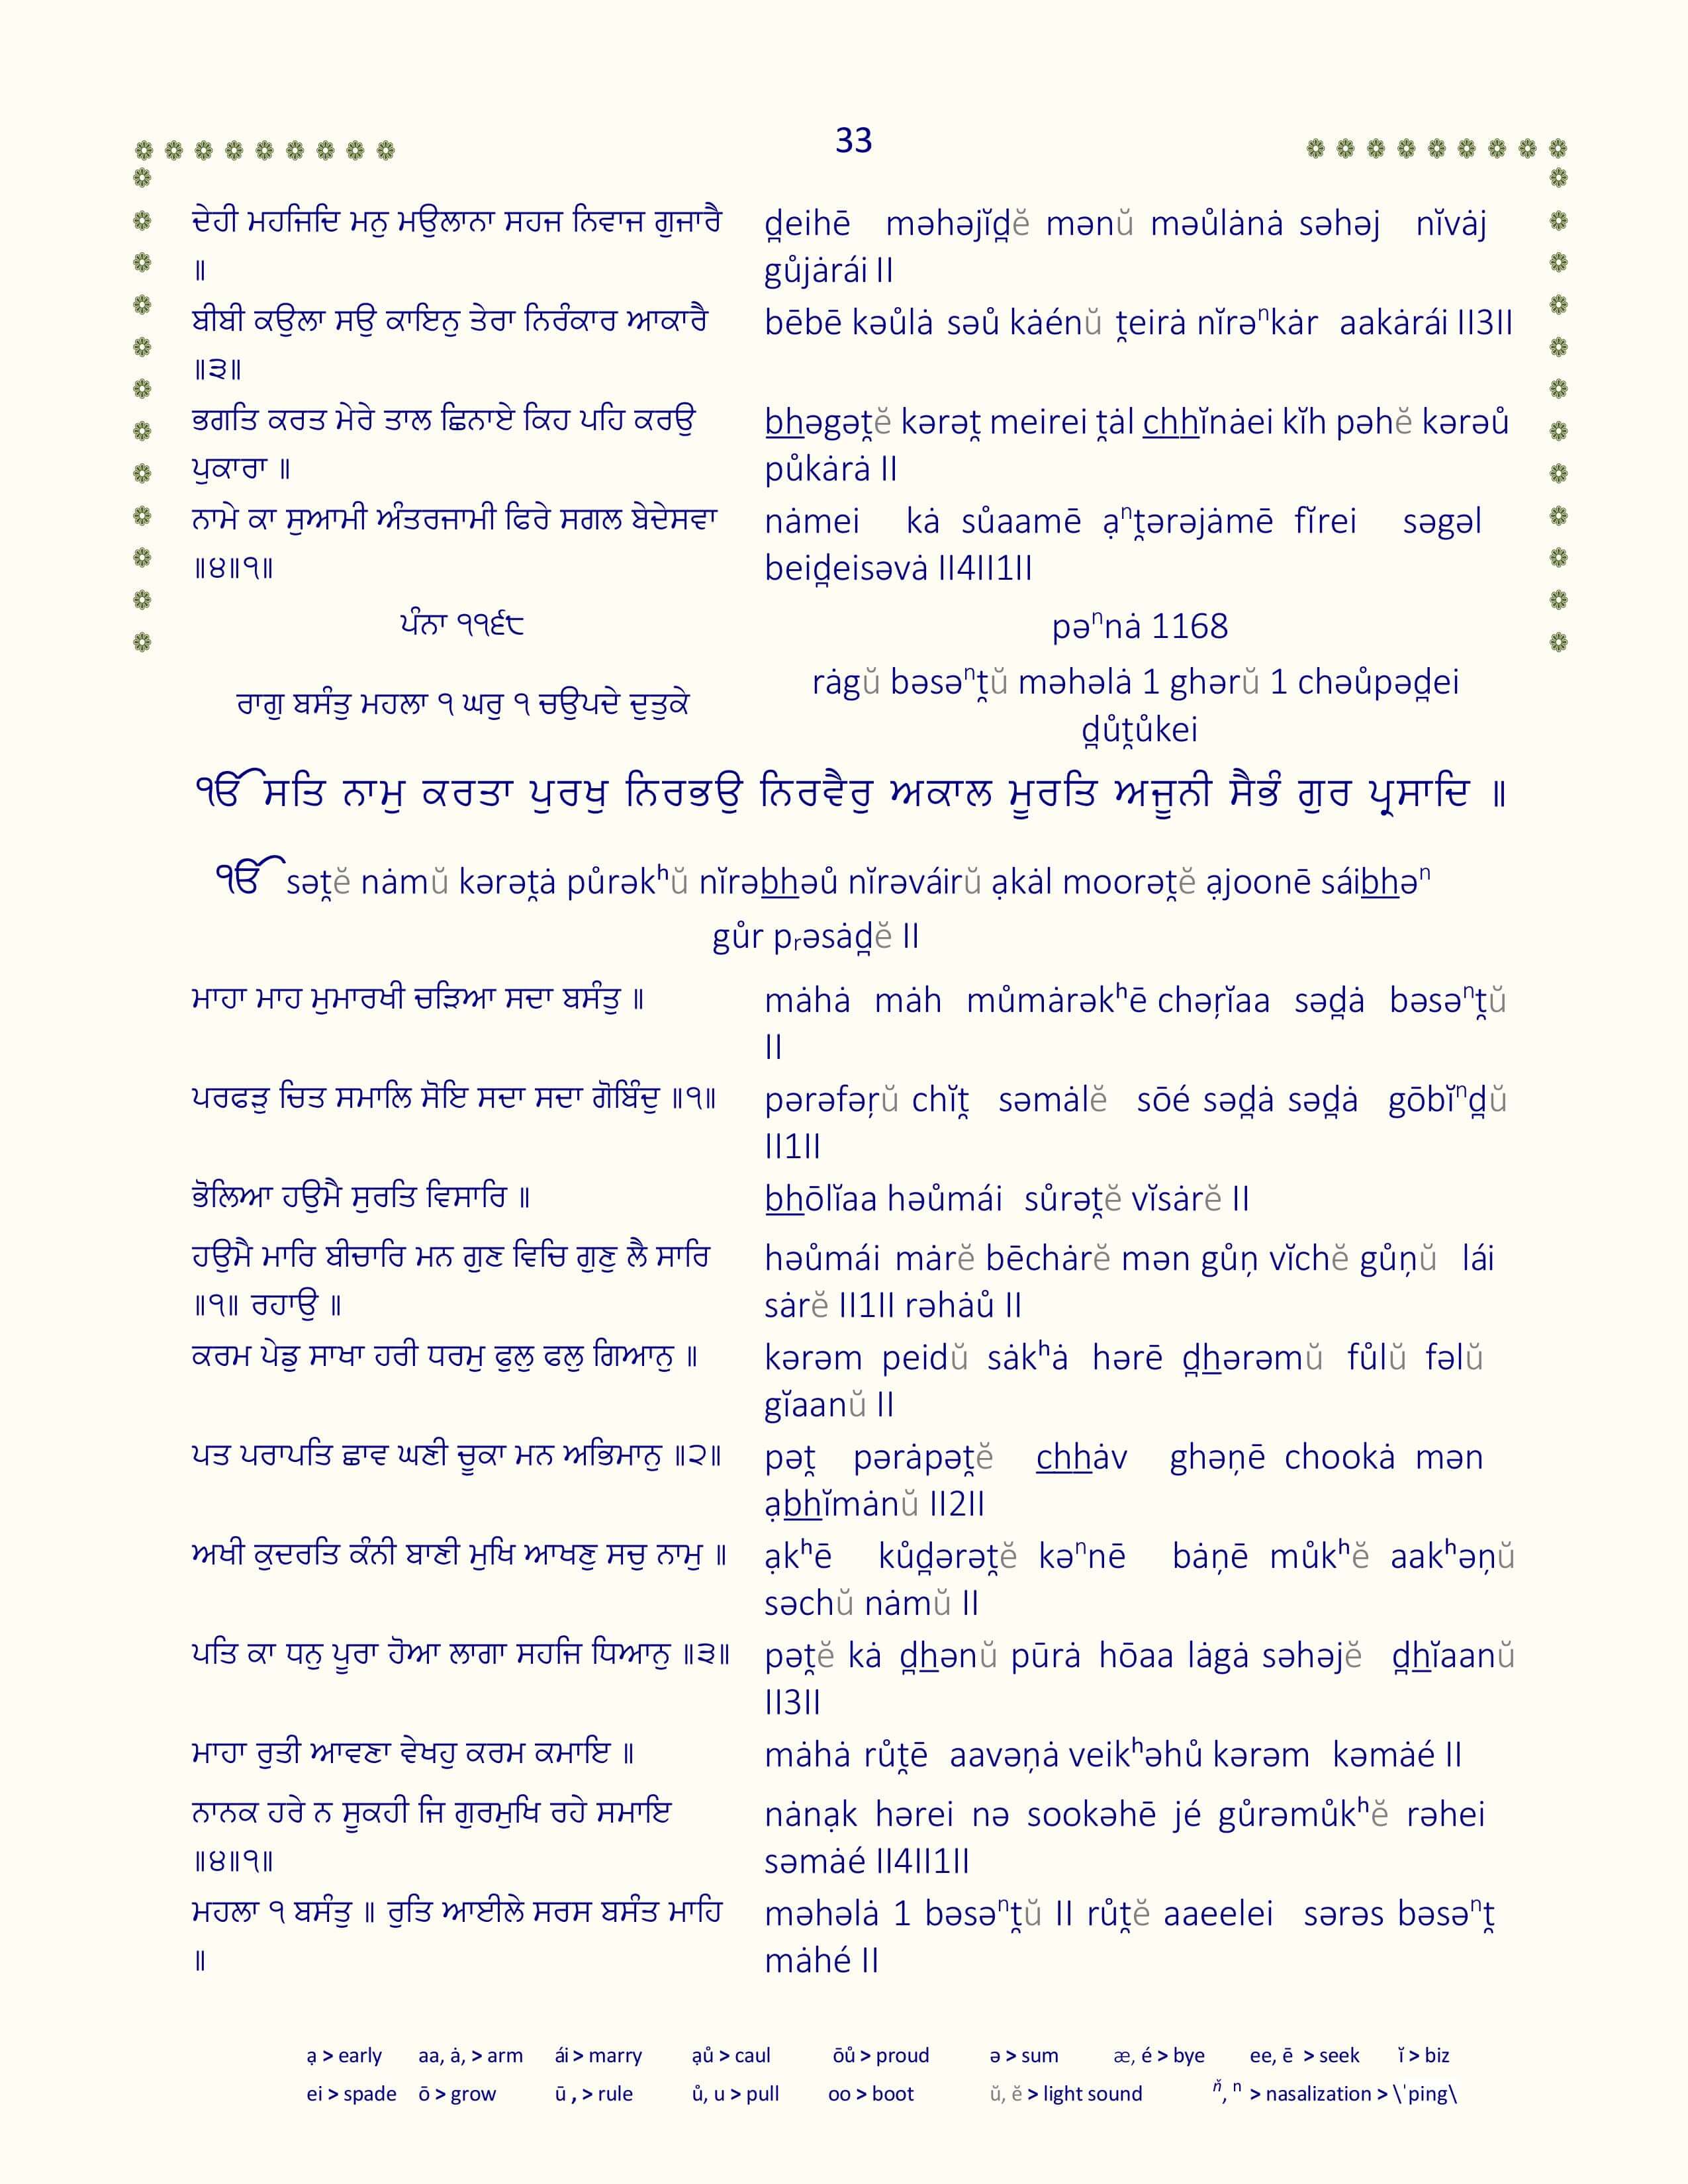 33
ਦੇਹੀ ਮਹਜਿਦਿ ਮਨੁ ਮਉਲਾਨਾ ਸਹਜ ਨਿਵਾਜ ਗੁਜਾਰੈ
॥
d̪eihē məhəjĭd̪ĕ mənŭ məůlȧnȧ səhəj nĭvȧj
gůjȧrái II
ਬੀਬੀ ਕਉਲਾ ਸਉ ਕਾਇਨੁ ਤੇਰਾ ਨਿਰੰਕਾਰ ਆਕਾਰੈ
॥੩॥
bēbē kəůlȧ səů kȧénŭ t̪eirȧ nĭrəⁿkȧr aakȧrái II3II
ਭਗਤਿ ਕਰਤ ਮੇਰੇ ਤਾਲ ਛਿਨਾਏ ਕਿਹ ਪਹਿ ਕਰਉ
ਪੁਕਾਰਾ ॥
bhəgət̪ĕ kərət̪ meirei t̪ȧl chhĭnȧei kĭh pəhĕ kərəů
půkȧrȧ II
ਨਾਮੇ ਕਾ ਸੁਆਮੀ ਅੰਤਰਜਾਮੀ ਫਿਰੇ ਸਗਲ ਬੇਦੇਸਵਾ
॥੪॥੧॥
nȧmei kȧ sůaamē ạⁿt̪ərəjȧmē fĭrei səgəl
beid̪eisəvȧ II4II1II
ਪੰਨਾ ੧੧੬੮
pəⁿnȧ 1168
ਰਾਗੁ ਬਸੰਤੁ ਮਹਲਾ ੧ ਘਰੁ ੧ ਚਉਪਦੇ ਦੁਤੁਕੇ
rȧgŭ bəsəⁿt̪ŭ məhəlȧ 1 ghərŭ 1 chəůpəd̪ei
d̪ůt̪ůkei
ੴ ਸਤਿ ਨਾਮੁ ਕਰਤਾ ਪੁਰਖੁ ਨਿਰਭਉ ਨਿਰਵੈਰੁ ਅਕਾਲ ਮੂਰਤਿ ਅਜੂਨੀ ਸੈਭੰ ਗੁਰ ਪ੍ਰਸਾਦਿ ॥
ੴ sət̪ĕ nȧmŭ kərət̪ȧ půrəkʰŭ nĭrəbhəů nĭrəváirŭ ạkȧl moorət̪ĕ ạjoonē sáibhəⁿ
gůr pᵣəsȧd̪ĕ II
ਮਾਹਾ ਮਾਹ ਮੁਮਾਰਖੀ ਚੜਿਆ ਸਦਾ ਬਸੰਤੁ ॥
mȧhȧ mȧh můmȧrəkʰē chəŗĭaa səd̪ȧ bəsəⁿt̪ŭ
II
ਪਰਫੜੁ ਚਿਤ ਸਮਾਲਿ ਸੋਇ ਸਦਾ ਸਦਾ ਗੋਬਿੰਦੁ ॥੧॥
pərəfəŗŭ chĭt̪ səmȧlĕ sōé səd̪ȧ səd̪ȧ gōbĭⁿd̪ŭ
II1II
ਭੋਲਿਆ ਹਉਮੈ ਸੁਰਤਿ ਵਿਸਾਰਿ ॥
bhōlĭaa həůmái sůrət̪ĕ vĭsȧrĕ II
ਹਉਮੈ ਮਾਰਿ ਬੀਚਾਰਿ ਮਨ ਗੁਣ ਵਿਚਿ ਗੁਣੁ ਲੈ ਸਾਰਿ
॥੧॥ ਰਹਾਉ ॥
həůmái mȧrĕ bēchȧrĕ mən gůņ vĭchĕ gůņŭ lái
sȧrĕ II1II rəhȧů II
ਕਰਮ ਪੇਡੁ ਸਾਖਾ ਹਰੀ ਧਰਮੁ ਫੁਲੁ ਫਲੁ ਗਿਆਨੁ ॥
kərəm peidŭ sȧkʰȧ hərē d̪hərəmŭ fůlŭ fəlŭ
gĭaanŭ II
ਪਤ ਪਰਾਪਤਿ ਛਾਵ ਘਣੀ ਚੂਕਾ ਮਨ ਅਭਿਮਾਨੁ ॥੨॥
pət̪ pərȧpət̪ĕ chhȧv ghəņē chookȧ mən
ạbhĭmȧnŭ II2II
ਅਖੀ ਕੁਦਰਤਿ ਕੰਨੀ ਬਾਣੀ ਮੁਖਿ ਆਖਣੁ ਸਚੁ ਨਾਮੁ ॥
ạkʰē kůd̪ərət̪ĕ kəⁿnē bȧņē můkʰĕ aakʰəņŭ
səchŭ nȧmŭ II
ਪਤਿ ਕਾ ਧਨੁ ਪੂਰਾ ਹੋਆ ਲਾਗਾ ਸਹਜਿ ਧਿਆਨੁ ॥੩॥
pət̪ĕ kȧ d̪hənŭ pūrȧ hōaa lȧgȧ səhəjĕ d̪hĭaanŭ
II3II
ਮਾਹਾ ਰੁਤੀ ਆਵਣਾ ਵੇਖਹੁ ਕਰਮ ਕਮਾਇ ॥
mȧhȧ růt̪ē aavəņȧ veikʰəhů kərəm kəmȧé II
ਨਾਨਕ ਹਰੇ ਨ ਸੂਕਹੀ ਜਿ ਗੁਰਮੁਖਿ ਰਹੇ ਸਮਾਇ
॥੪॥੧॥
nȧnạk hərei nə sookəhē jé gůrəmůkʰĕ rəhei
səmȧé II4II1II
ਮਹਲਾ ੧ ਬਸੰਤੁ ॥ ਰੁਤਿ ਆਈਲੇ ਸਰਸ ਬਸੰਤ ਮਾਹਿ
॥
məhəlȧ 1 bəsəⁿt̪ŭ II růt̪ĕ aaeelei sərəs bəsəⁿt̪
mȧhé II
ạ > early aa, ȧ, > arm ái > marry ạů > caul ōů > proud ə > sum æ, é > bye ee, ē > seek ĭ > biz
ei > spade ō > grow ū , > rule ů, u > pull oo > boot ŭ, ĕ > light sound ň, ⁿ > nasalization > \ˈping\